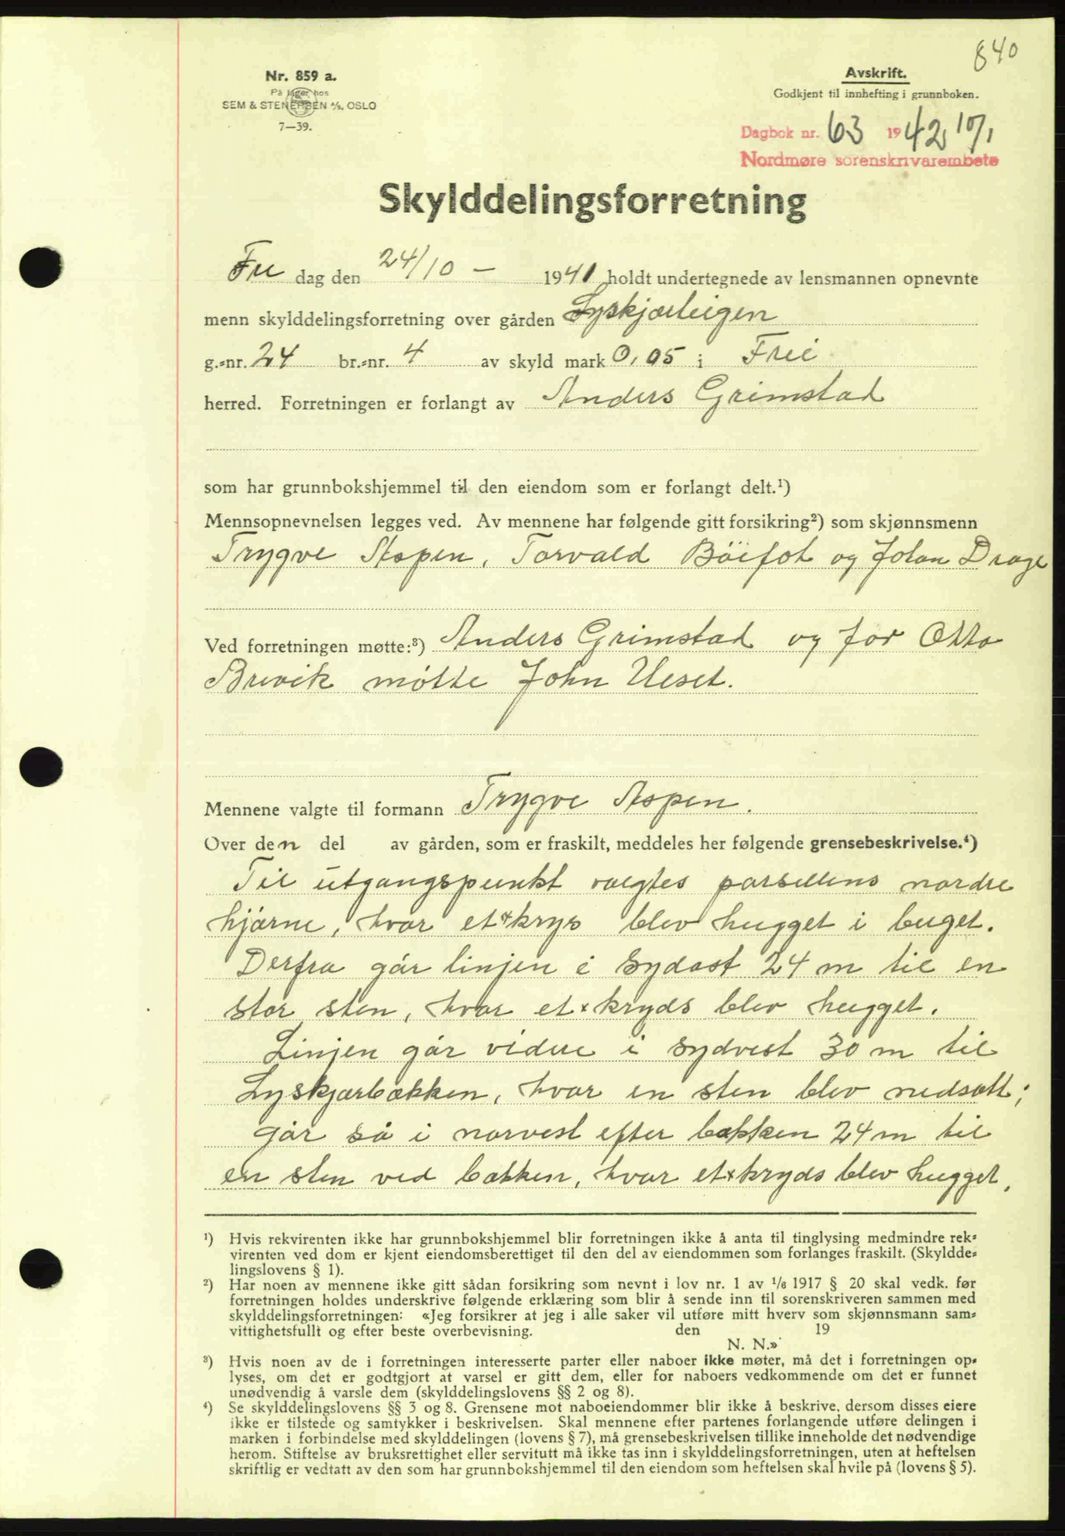 840
Nr. 859 a.
På lager hos
SEM & STENERSEN A/S, OSLO
7—39.
Avskrift.
Godkjent til innhefting i grunnboken.
Dagbok nr. 63 1942 17/1
Nordmøre sorenskrivarembete
Skylddelingsforretning
Fre dag den 24/10 — 1941 holdt undertegnede av lensmannen opnevnte
menn skylddelingsforretning over gården Lyskjærleigen
g.-nr. 24 br.-nr. 4 av skyld mark 0,05 i Frei
herred. Forretningen er forlangt av Anders Grimstad
som har grunnbokshjemmel til den eiendom som er forlangt delt.¹)
Mennsopnevnelsen legges ved. Av mennene har følgende gitt forsikring²) som skjønnsmenn
Trygve Aspen, Torvald Böifot og Johan Drage
Ved forretningen møtte:³) Anders Grimstad og for Otto
Brevik møtte John Ueset.
Mennene valgte til formann Trygve Aspen.
Over den del av gården, som er fraskilt, meddeles her følgende grensebeskrivelse.⁴)
Til utgangspunkt valgtes parsellens nordre
hjørne, hvor et x krys blev hugget i berget.
Derfra går linjen i sydost 24 m til en
stor sten, hvor et x kryds blev hugget.
Linjen går videre i sydvest 30 m til
Lyskjærbækken, hvor en sten blev nedsatt;
går så i norvest efter bækken 24 m til
en sten ved bækken, hvor et x kryds blev hugget,
¹) Hvis rekvirenten ikke har grunnbokshjemmel blir forretningen ikke å anta til tinglysing medmindre rek-
virenten ved dom er kjent eiendomsberettiget til den del av eiendommen som forlanges fraskilt. (Skyldde-
lingslovens § 1).
²) Har noen av mennene ikke gitt sådan forsikring som nevnt i lov nr. 1 av 1/6 1917 § 20 skal vedk. før
forretningen holdes underskrive følgende erklæring som blir å sende inn til sorenskriveren sammen med
skylddelingsforretningen: «Jeg forsikrer at jeg i alle saker vil utføre mitt hverv som skjønnsmann sam-
vittighetsfullt og efter beste overbevisning. den 19
N. N.»
³) Hvis noen av de i forretningen interesserte parter eller naboer ikke møter, må det i forretningen op-
lyses, om det er godtgjort at varsel er gitt dem, eller for naboers vedkommende om det er funnet
unødvendig å varsle dem (skylddelingslovens §§ 2 og 8).
⁴) Se skylddelingslovens §§ 3 og 8. Grensene mot naboeiendommer blir ikke å beskrive, dersom disses eiere
ikke er tilstede og samtykker i beskrivelsen. Skal mennene efter partenes forlangende utføre delingen i
marken i forbindelse med skylddelingen (lovens § 7), må grensebeskrivelsen tillike inneholde det nødvendige
herom. Stiftelse av bruksrettighet eller servitutt må ikke tas inn i skylddelingsforretningen, uten at heftelsen
skriftlig er vedtatt av den som har grunnbokshjemmel til den eiendom som heftelsen skal hvile på (lovens § 5).